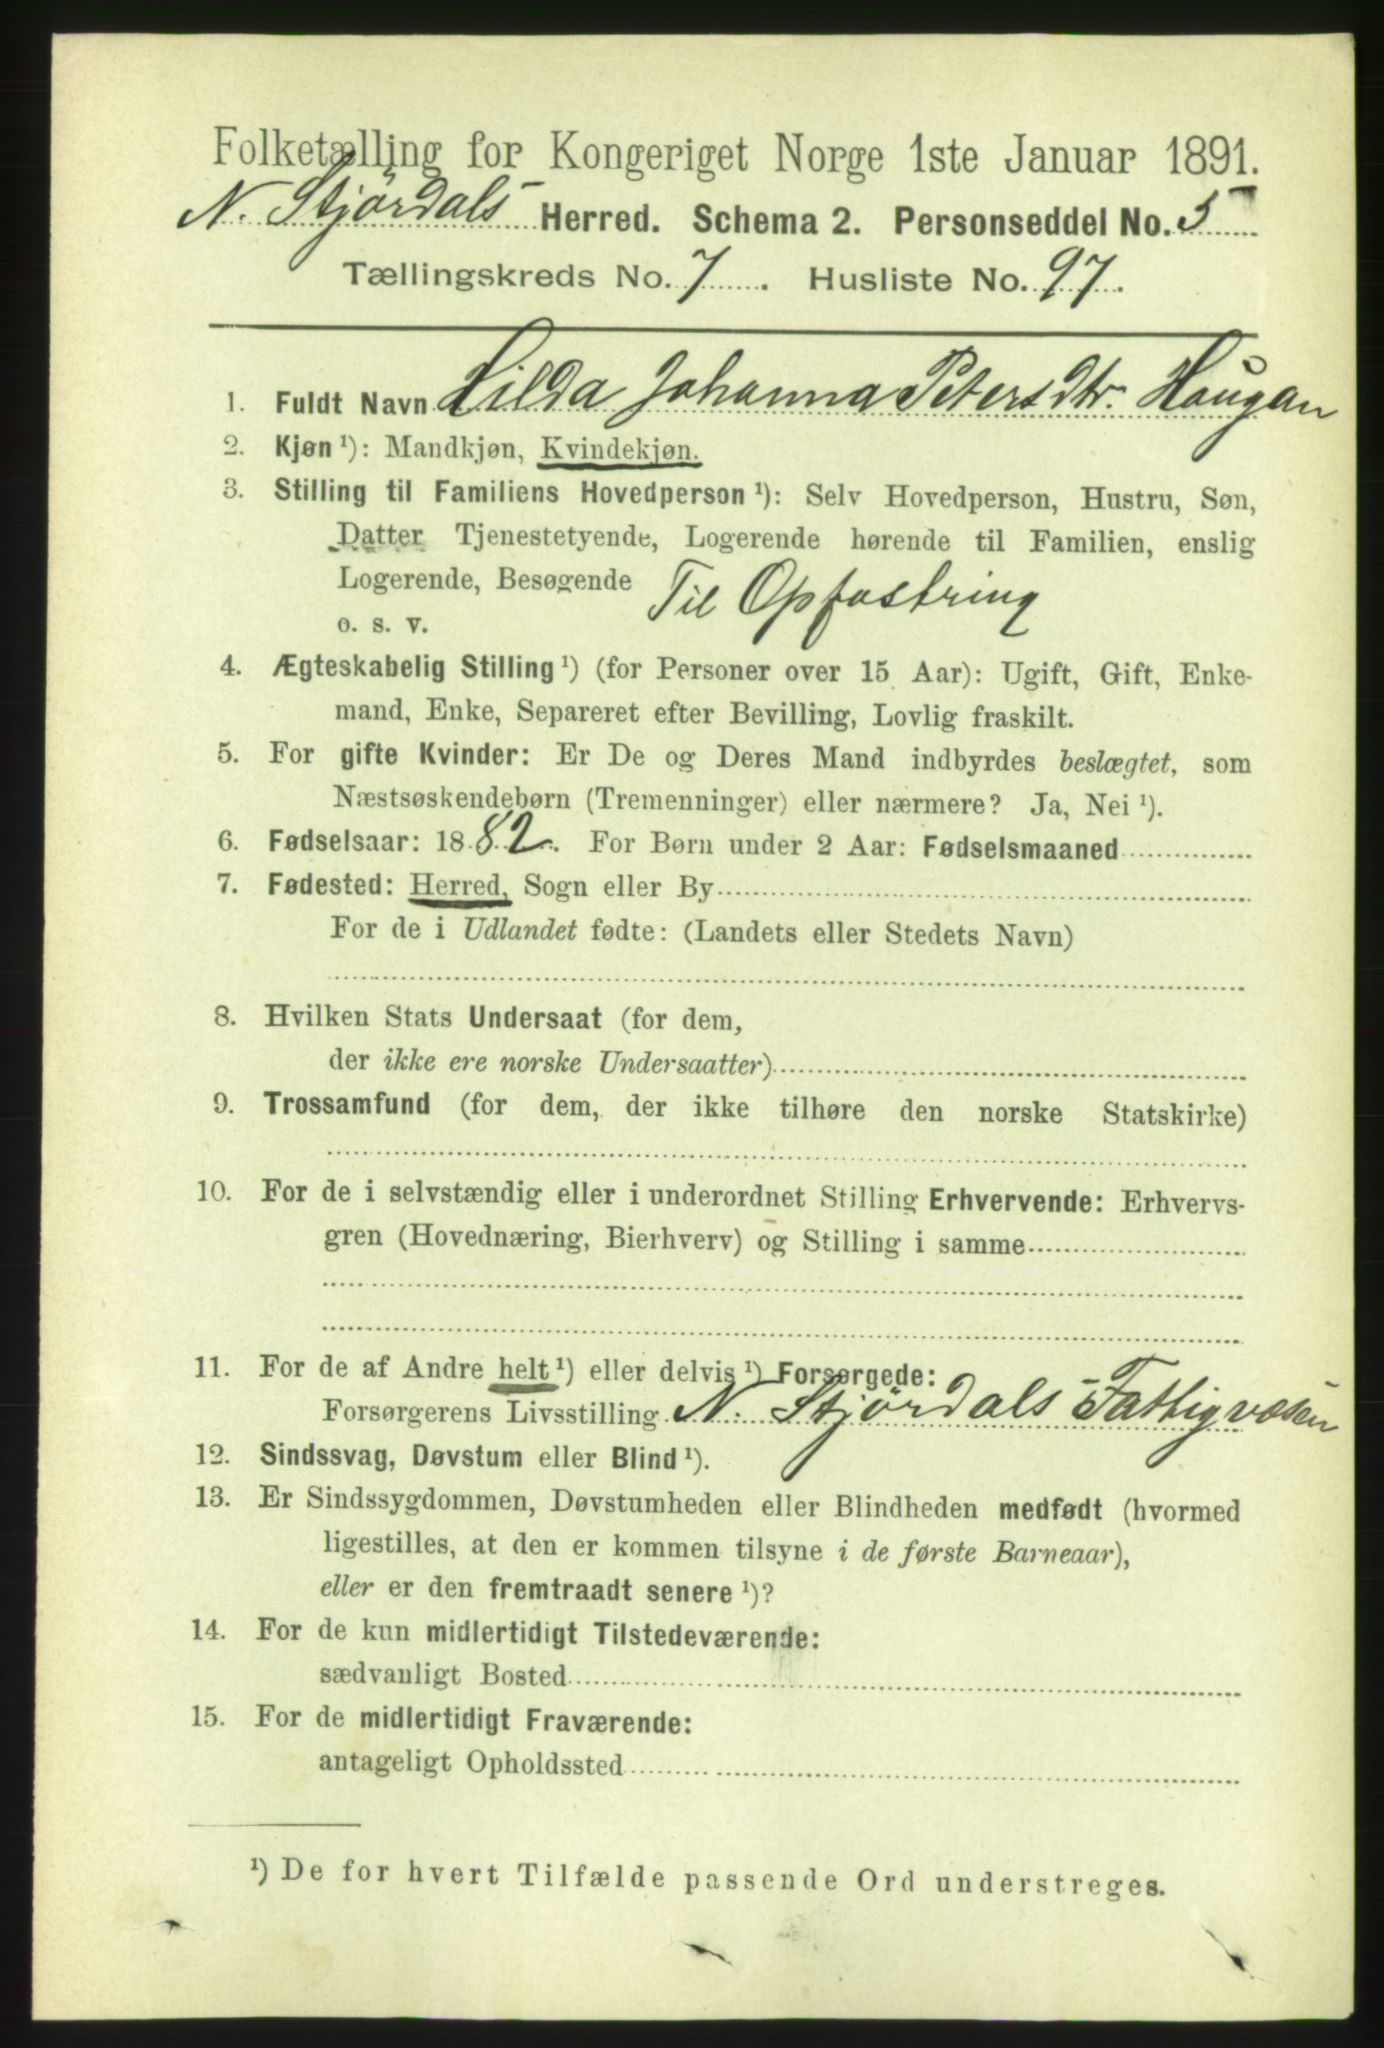 Folketælling for Kongeriget Norge 1ste Januar 1891.
N. Stjördals Herred. Schema 2. Personseddel No. 5
Tællingskreds No. 7. Husliste No. 97.
1. Fuldt Navn Hilda Johanna Petersdtr. Haugan
2. Kjøn ¹): Mandkjøn, Kvindekjøn.
3. Stilling til Familiens Hovedperson ¹): Selv Hovedperson, Hustru, Søn,
Datter Tjenestetyende, Logerende hørende til Familien, enslig
Logerende, Besøgende Til Opfostring
o. s. v.
4. Ægteskabelig Stilling ¹) (for Personer over 15 Aar): Ugift, Gift, Enke-
mand, Enke, Separeret efter Bevilling, Lovlig fraskilt.
5. For gifte Kvinder: Er De og Deres Mand indbyrdes beslægtet, som
Næstsøskendebørn (Tremenninger) eller nærmere? Ja, Nei ¹).
6. Fødselsaar: 1882. For Børn under 2 Aar: Fødselsmaaned
7. Fødested: Herred, Sogn eller By
For de i Udlandet fødte: (Landets eller Stedets Navn)
8. Hvilken Stats Undersaat (for dem,
der ikke ere norske Undersaatter)
9. Trossamfund (for dem, der ikke tilhøre den norske Statskirke)
10. For de i selvstændig eller i underordnet Stilling Erhvervende: Erhvervs-
gren (Hovednæring, Bierhverv) og Stilling i samme
11. For de af Andre helt ¹) eller delvis ¹) Forsørgede:
Forsørgerens Livsstilling N. Stjördals Fattigvæsen
12. Sindssvag, Døvstum eller Blind ¹).
13. Er Sindssygdommen, Døvstumheden eller Blindheden medfødt (hvormed
ligestilles, at den er kommen tilsyne i de første Barneaar),
eller er den fremtraadt senere ¹)?
14. For de kun midlertidigt Tilstedeværende:
sædvanligt Bosted
15. For de midlertidigt Fraværende:
antageligt Opholdssted
¹) De for hvert Tilfælde passende Ord understreges.